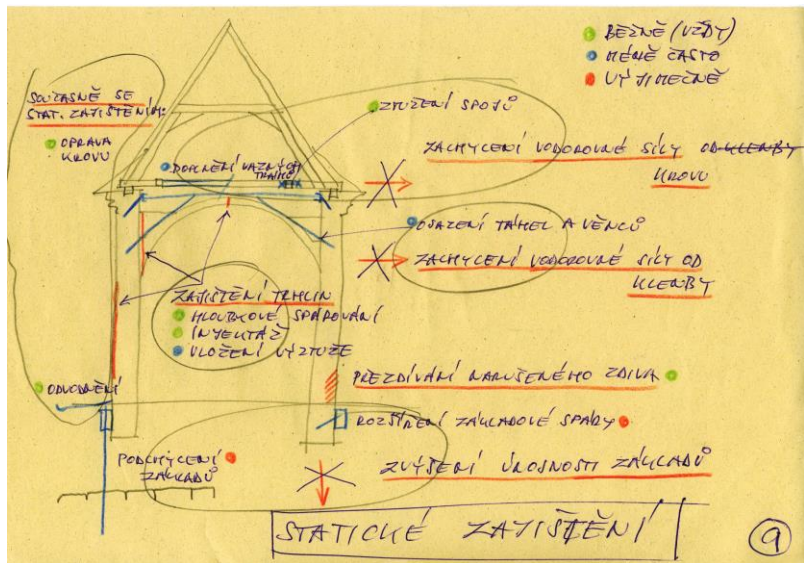 BĚŽNĚ (VŽDY)
MÉNĚ ČASTO
VÝJIMEČNĚ
SOUČASNĚ SE
STAT. ZAJIŠTĚNÍM:
OPRAVA
KROVU
ZTUŽENÍ SPOJŮ
DOPLNĚNÍ VAZNÝCH
TRÁMŮ
ZACHYCENÍ VODOROVNÉ SÍLY OD KLENBY
KROVU
OSAZENÍ TÁHEL A VĚNCŮ
ZACHYCENÍ VODOROVNÉ SÍLY OD
KLENBY
ZAJIŠTĚNÍ TRHLIN
HLOUBKOVÉ SPÁROVÁNÍ
INJEKTÁŽ
VLOŽENÍ VÝZTUŽE
ODVODNĚNÍ
PŘEZDÍVÁNÍ NARUŠENÉHO ZDIVA
ROZŠÍŘENÍ ZÁKLADOVÉ SPÁRY
PODCHYCENÍ
ZÁKLADŮ
ZVÝŠENÍ ÚNOSNOSTI ZÁKLADŮ
STATICKÉ ZAJIŠTĚNÍ
9